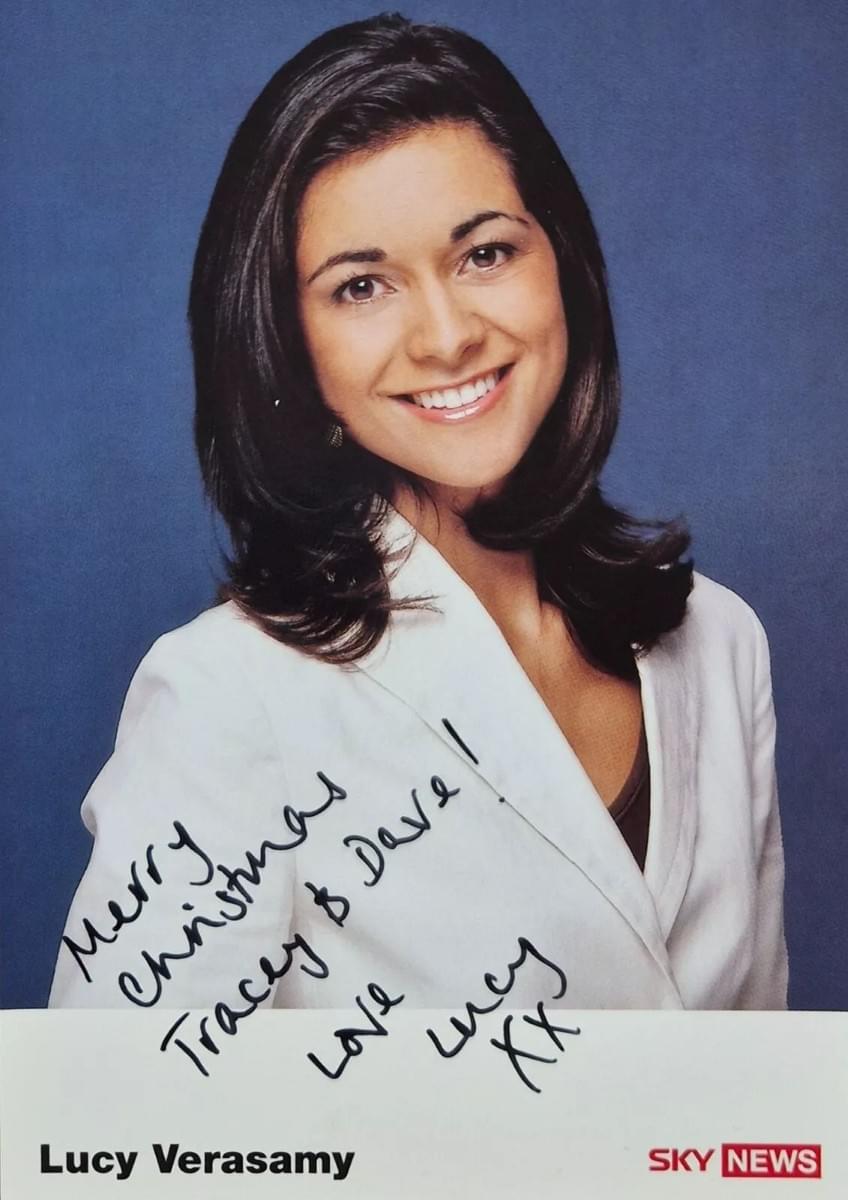 Merry
Christmas
Tracey & Dave!
Love Lucy
XX
Lucy Verasamy
SKY NEWS